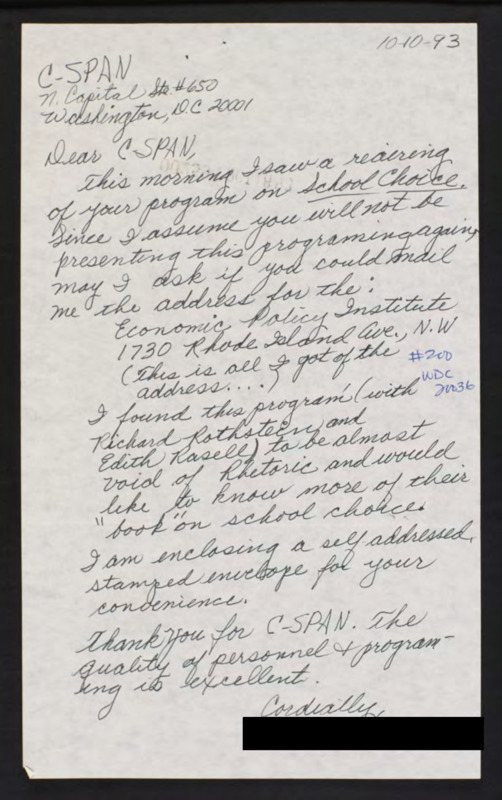 10-10-93
C-SPAN
N. Capital Ste. #650
Washington, D.C 20001
Dear C-SPAN,
This morning I saw a reairing
of your program on School Choice.
Since I assume you will not be
presenting this programing again,
may I ask if you could mail
me the address for the:
Economic Policy Institute
1730 Rhode Island Ave., N.W
(This is all I got of the
address....)
#200
WDC
20036
I found this program (with
Richard Rothstein and
Edith Rasell) to be almost
void of Rhetoric and would
like to know more of their
"book" on school choice.
I am enclosing a self addressed,
stamped envelope for your
convenience.
Thank you for C-SPAN. The
quality of personnel & program-
ing is excellent.
Cordially,